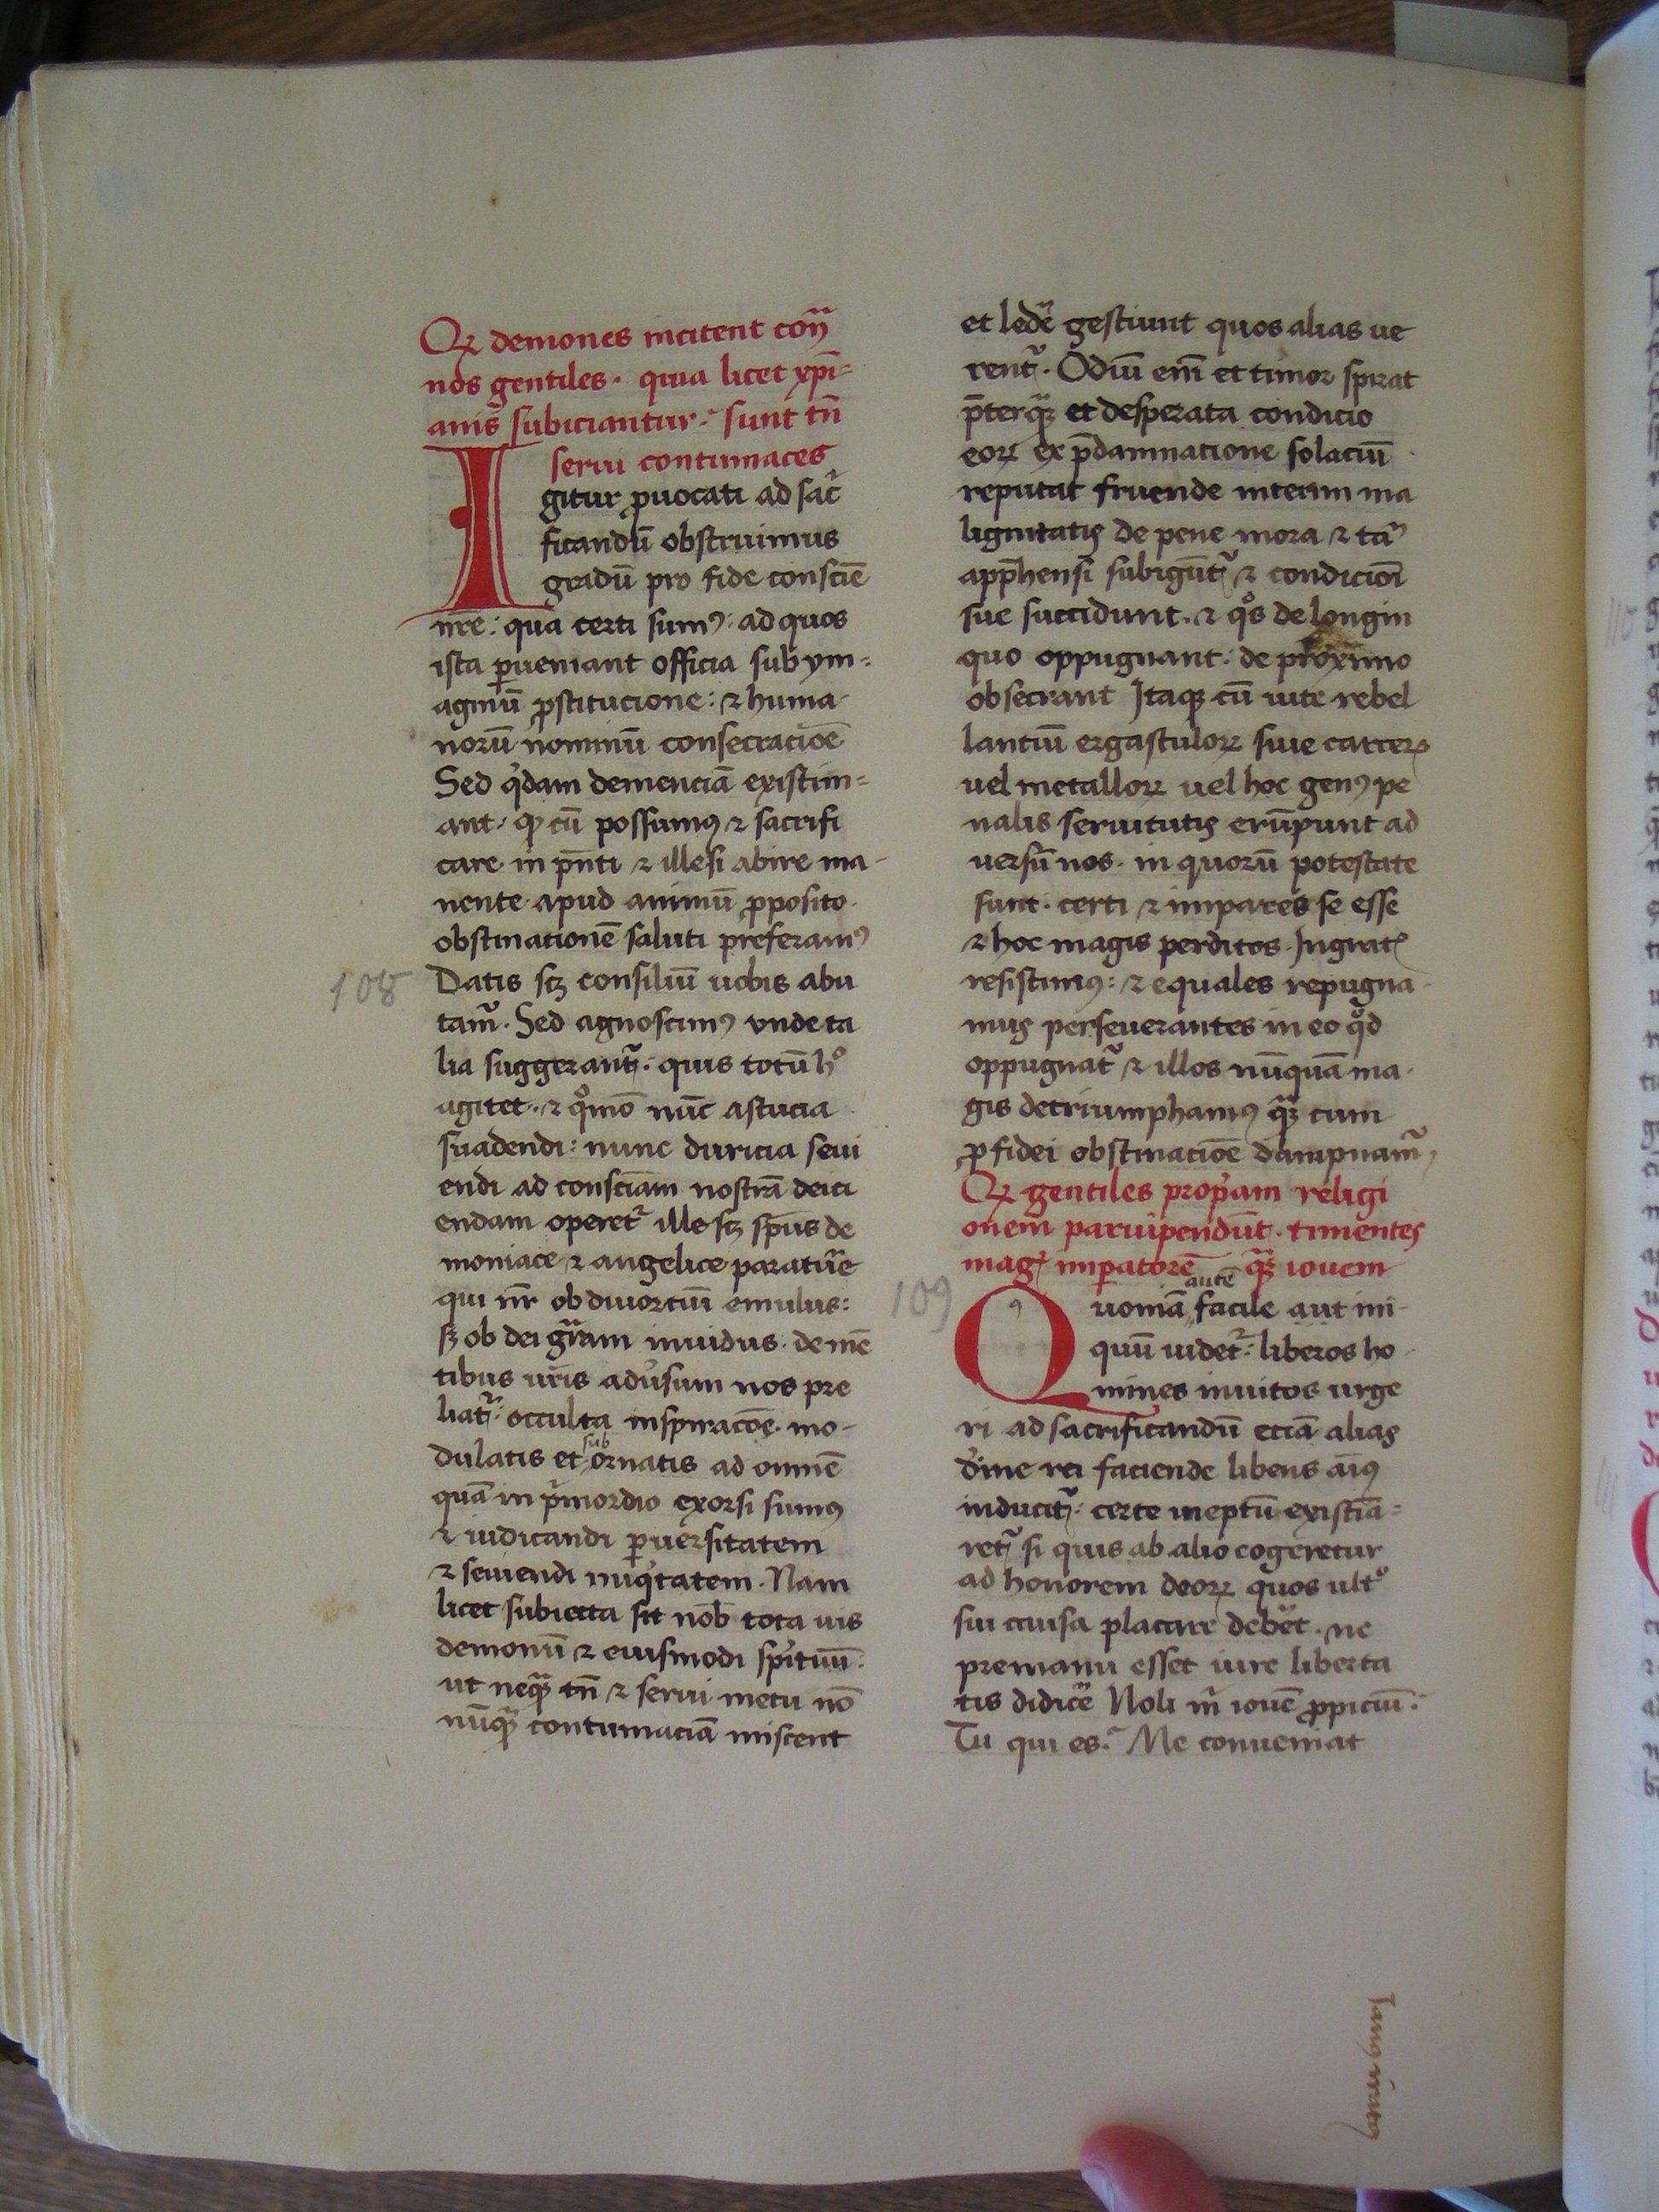 Qꝝ demones incitent cont̃
nos gentiles. quia licet xp̃i=
anis subiciantur. sunt tn̄
serui contumaces
Igitur ꝓuocati ad sacͥ
ficandū obstruimus
gradū pro fide conscīe
nr̃e: qua certi sumꝰ: ad quos
ista ꝑueniant officia sub ym=
aginū ꝓstitucione: ⁊ huma
norū nominū consecracioē
Sed qͥdam demenciā existim=
ant. ꝙ cū possumꝰ ⁊ sacrifi
care in pn̄ti ⁊ illesi abire ma-
nente apud animū ꝓposito.
obstinationē saluti preferamꝰ
108
Datis sꝫ consiliū uobis abu
tamͬ. Sed agnoscimꝰ vnde ta
lia suggerantͬ. quis totū hͦ
agitet. ⁊ qͦmō nūc astucia
suadendi: nunc duricia seui
endi ad consc̄iam nostrā deici
endam operetͬ ille sꝫ sp̄us de
moniace ⁊ angelice paratur̃e
qui nr̄ ob diuortiū emulus:
sꝫ ob dei gͣtiam inuidus. de mē
tibus ur̄is adu̓sum nos pre
liatͬ: occulta inspiracōe. mo-
dulatis et ornatis ad omnē
sub
quā in pͥmordio exorsi sumꝰ
⁊ iudicandi ꝑuersitatem
⁊ seuiendi iniqͥtatem. Nam
licet subiecta sit nob̄ tota uis
demonū ⁊ eiusmodi spͥituū:
ut neqͣꝫ tn̄ ⁊ serui metu nō
nūqͣꝫ contumaciā miscent
et leder̃ gestiunt quos alias ue
rentͬ. Odiū enī et timor spirat
p̄terqͣꝫ et desperata condicio
eoꝝ ex p̄damnatione solaciū
reputat fruende interim ma
lignitatis de pene mora ⁊ tn̄
app̄hensi subigūtͬ ⁊ condicioī
sue succidunt. ⁊ qͦs de longin
quo oppugnant: de proximo
obsecrant Itaqꝫ cū uice rebel
lantiū ergastuloꝝ siue carceꝝ
uel metalloꝝ uel hoc genꝰ pe
nalis seruitutis erūpunt ad
uersū nos. in quorū potestate
sunt. certi ⁊ impares se esse
⁊ hoc magis perditos. Ingratꝭ
resistimꝰ: ⁊ equales repugna-
mus perseuerantes in eo qͦd
oppugnatͬ ⁊ illos nūquā ma-
gis detriumphamꝰ qͣꝫ cum
ꝓ fidei obstinacioē dampnamͬ.
Qꝝ gentiles prop̓am religi
onem paruipendūt. timentes
magꝭ imꝑatorē qͣꝫ iouem
109
autē
Quoniā facile aut ini-
quū uidetͬ: liberos ho-
mines inuitos urge
ri ad sacrificandū eciā alias
dͥine rei faciende libens aīꝰ
inducitͬ: certe ineptū existīa=
retͬ si quis ab alio cogeretur
ad honorem deoꝝ quos ultͦ
sui causa placare deber̃et. ne
premanu esset iure liberta
tis dicer̃e Nolo m̄ iouē ꝓpiciū.
Tu qui es. Me conueniat